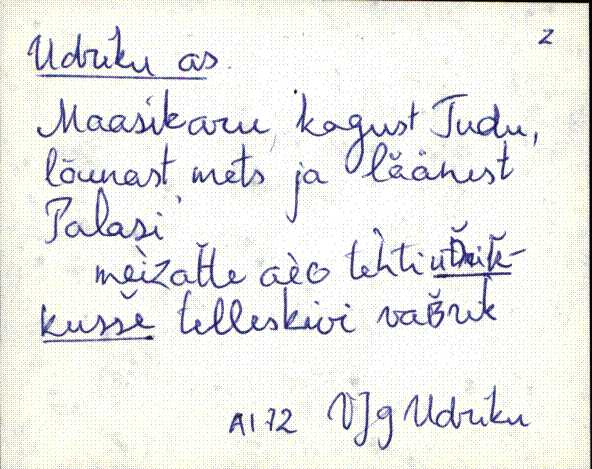 2
Udriku as.
Maasikaru, kagust Tudu,
lõunast mets ja läänest
Palasi
meìzatte aèo tehti
kusse telleskivi vaʙrik
AI 72 VJg Udriku